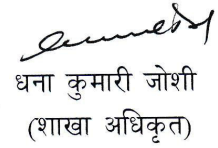 धना कुमारी जोशी
(शाखा अधिकृत)